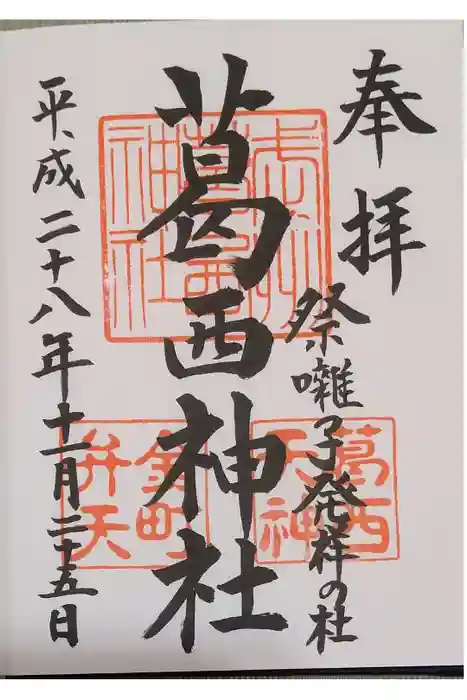 奉拝
祭囃子発祥の杜
葛西神社
平成二十八年十一月二十五日
葛西
天神
金町
弁天